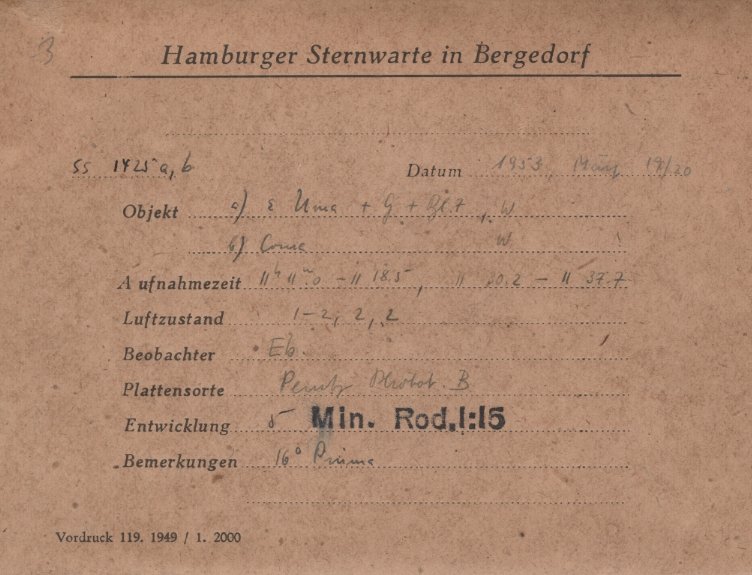 Hamburger Sternwarte in Bergedorf
SS 1425 a, b
Datum 1953, 19/20
Objekt a) ε Uma + G + , W
b) Coma W
Aufnahmezeit 11h 11m0 - 11 18.5, 11 30.2 - 11 37.7
Luftzustand 1-2, 2, 2
Beobachter Eb.
Plattensorte Perutz B
Entwicklung 5 Min. Rod.1:15
Bemerkungen 16° Prisma
Vordruck 119. 1949 / 1. 2000